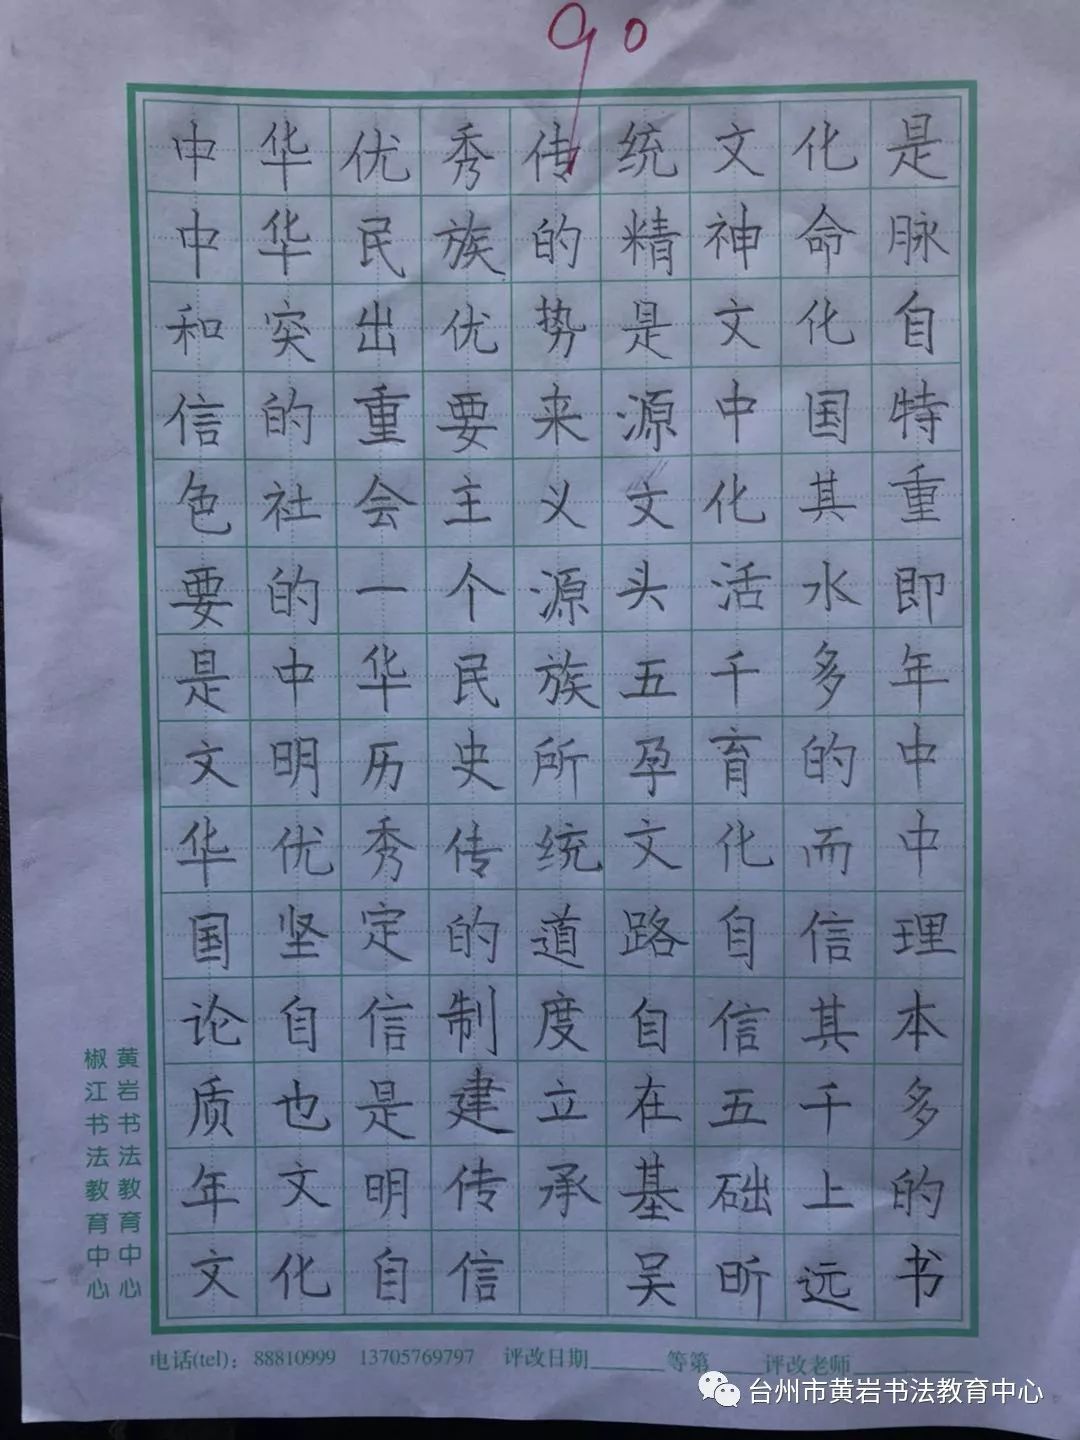 90
中华优秀传统文化是
中华民族的精神命脉
和突出优势是文化自
信的重要来源中国特
色社会主义文化其重
要的一个源头活水即
是中华民族五千多年
文明历史所孕育的中
华优秀传统文化而中
国坚定的道路自信理
论自信制度自信其本
质也是建立在五千多
年文明传承基础上的
文化自信 吴昕远书
黄岩书法教育中心
椒江书法教育中心
电话(tel): 88810999 13705769797 评改日期______等第____评改老师____
台州市黄岩书法教育中心